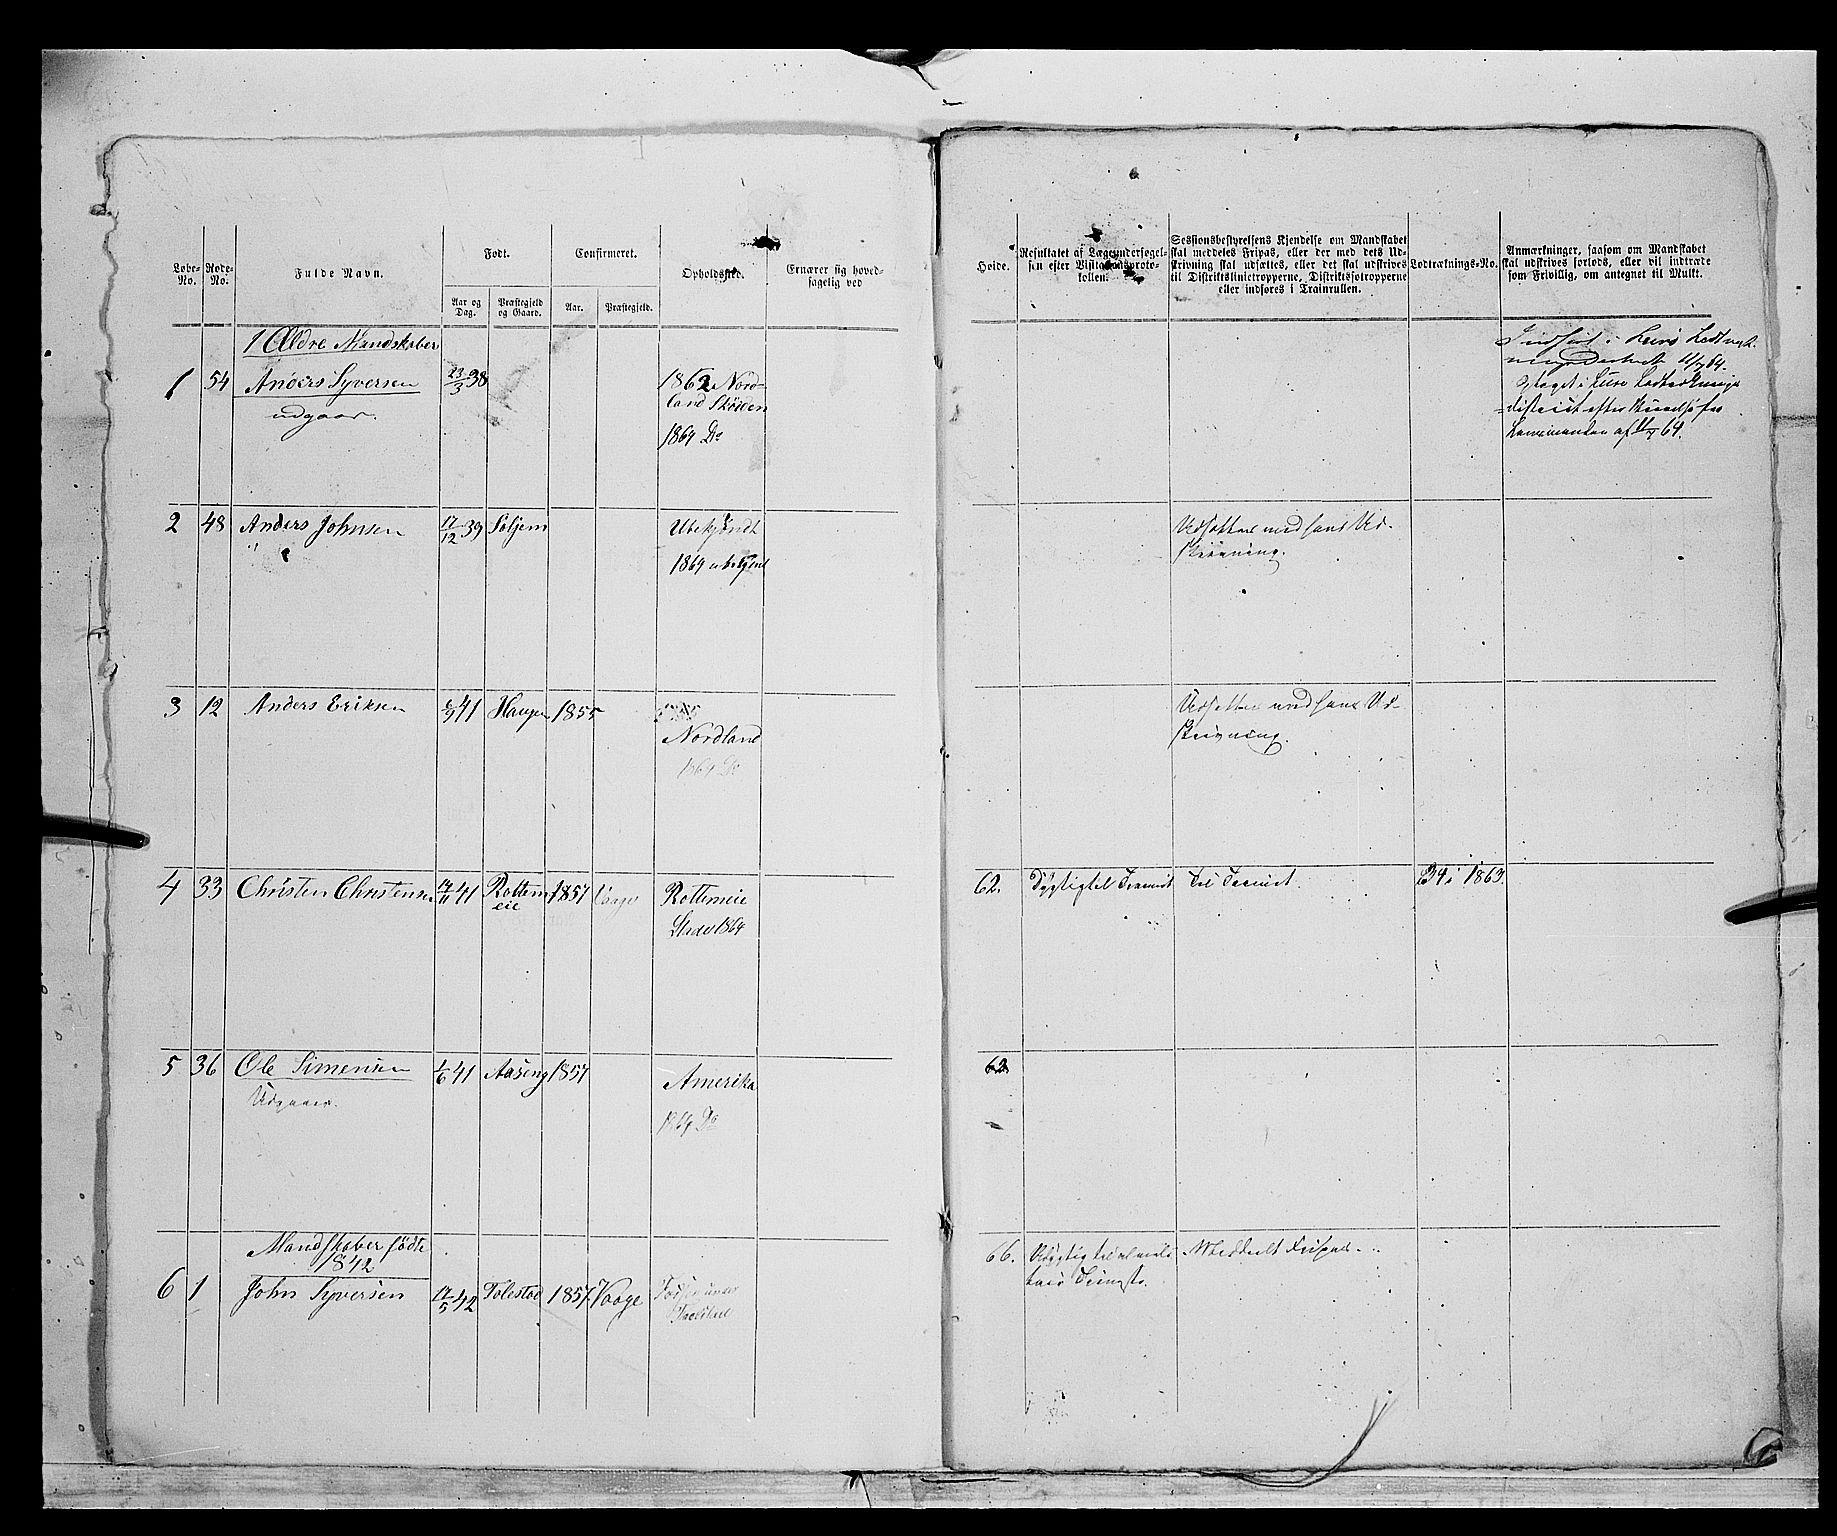 Løbe-No.
Rode-No.
Fulde Navn.
Født.
Aar og Dag.
Præstegjeld og Gaard.
Confirmeret.
Aar.
Præstegjeld.
Opholdssted.
Ernærer sig hoved-
sagelig ved
Høide.
Resultatet af Lægeundersøgel-
sen efter Visitationsproto-
kollen.
Sessionsbestyrelsens Kjendelse om Mandskabet
skal meddeles Fripas, eller der med dets Ud-
skrivning skal udsættes, eller det skal udskrives
til Distriktslinietropperne, Distriktsfotropperne
eller indføres i Trainrullen.
Lodtræknings-No.
Anmærkninger, saasom om Mandskabet
skal udskrives forlods, eller vil indtræde
som Frivillig, om antegnet til Mulkt.
1 Ældre Mandskaber
1 54 Anders Syversen 23/3 38 1862 Nord-
land Skörden
udgaar.
1864 Do
11/7 64.
Optaget i Lodtræknings
=district efter
Lensmanden af 11/7 64.
2 48 Anders Johnsen 17/12 39 Soljem Ubekjendt
" 1864 ubekjent
Udsættes med hans Ud-
skrivning.
3 12 Anders Eriksen 41 Haugen 1855
Nordland
1864 Do
Udsættes med hans Ud-
skrivning.
4 33 Christen Christensen 17/11 41 Rottem
eie 1857 Vaage Rottemeie
1864
62. Dygtig til Trainist Til Trainist. 34 i 1863.
5 36 Ole Simensen 1/6 41 Aaseng 1857 Amerika
Udgaaer. 1864 Do
62.
Mandskaber födte
1842
6 1 John Syversen 17/5 42 Tolestad 1857 Vaage
66. Udygtig til
Meddeelt Fripas.